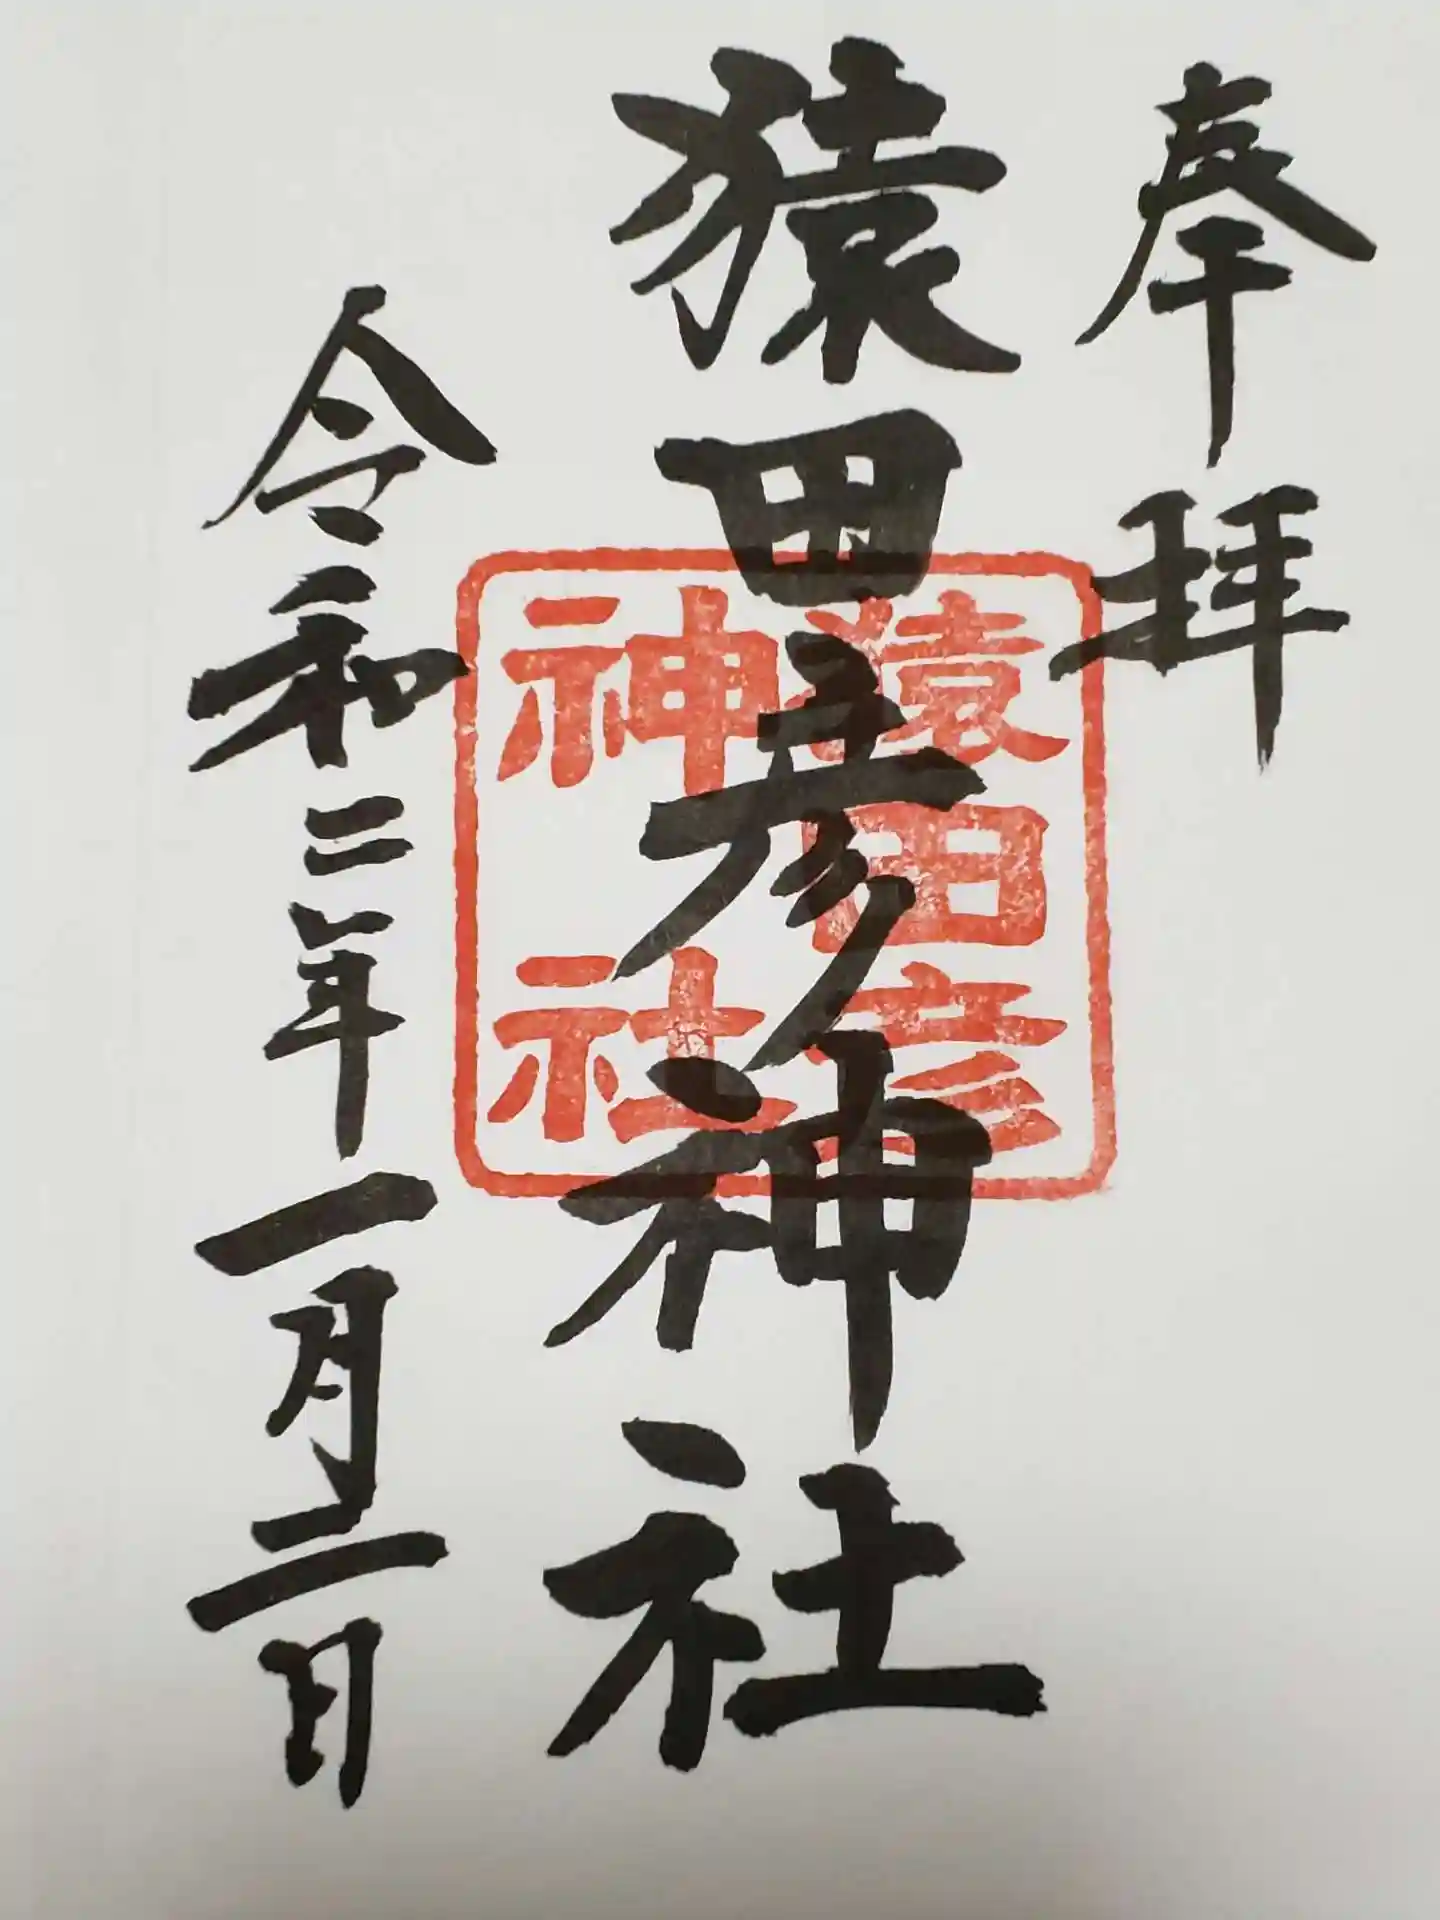 奉拝
猿田彦神社
猿田彦
神社
令和二年一月二日